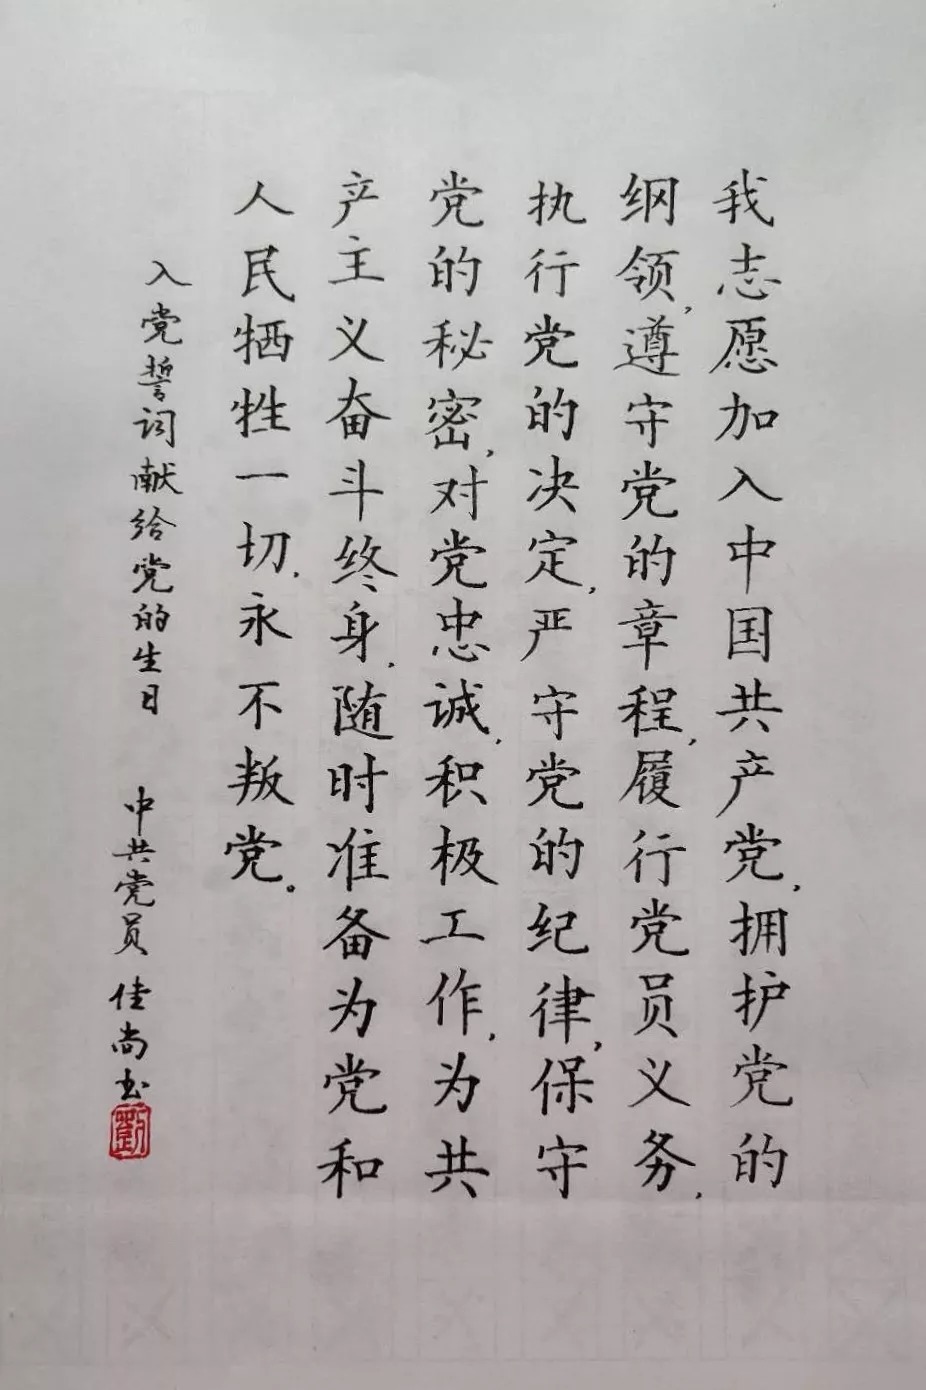 我志愿加入中国共产党，拥护党的
纲领，遵守党的章程，履行党员义务，
执行党的决定，严守党的纪律，保守
党的秘密，对党忠诚，积极工作，为共
产主义奋斗终身，随时准备为党和
人民牺牲一切，永不叛党。
入党誓词献给党的生日 中共党员佳尚书
刘